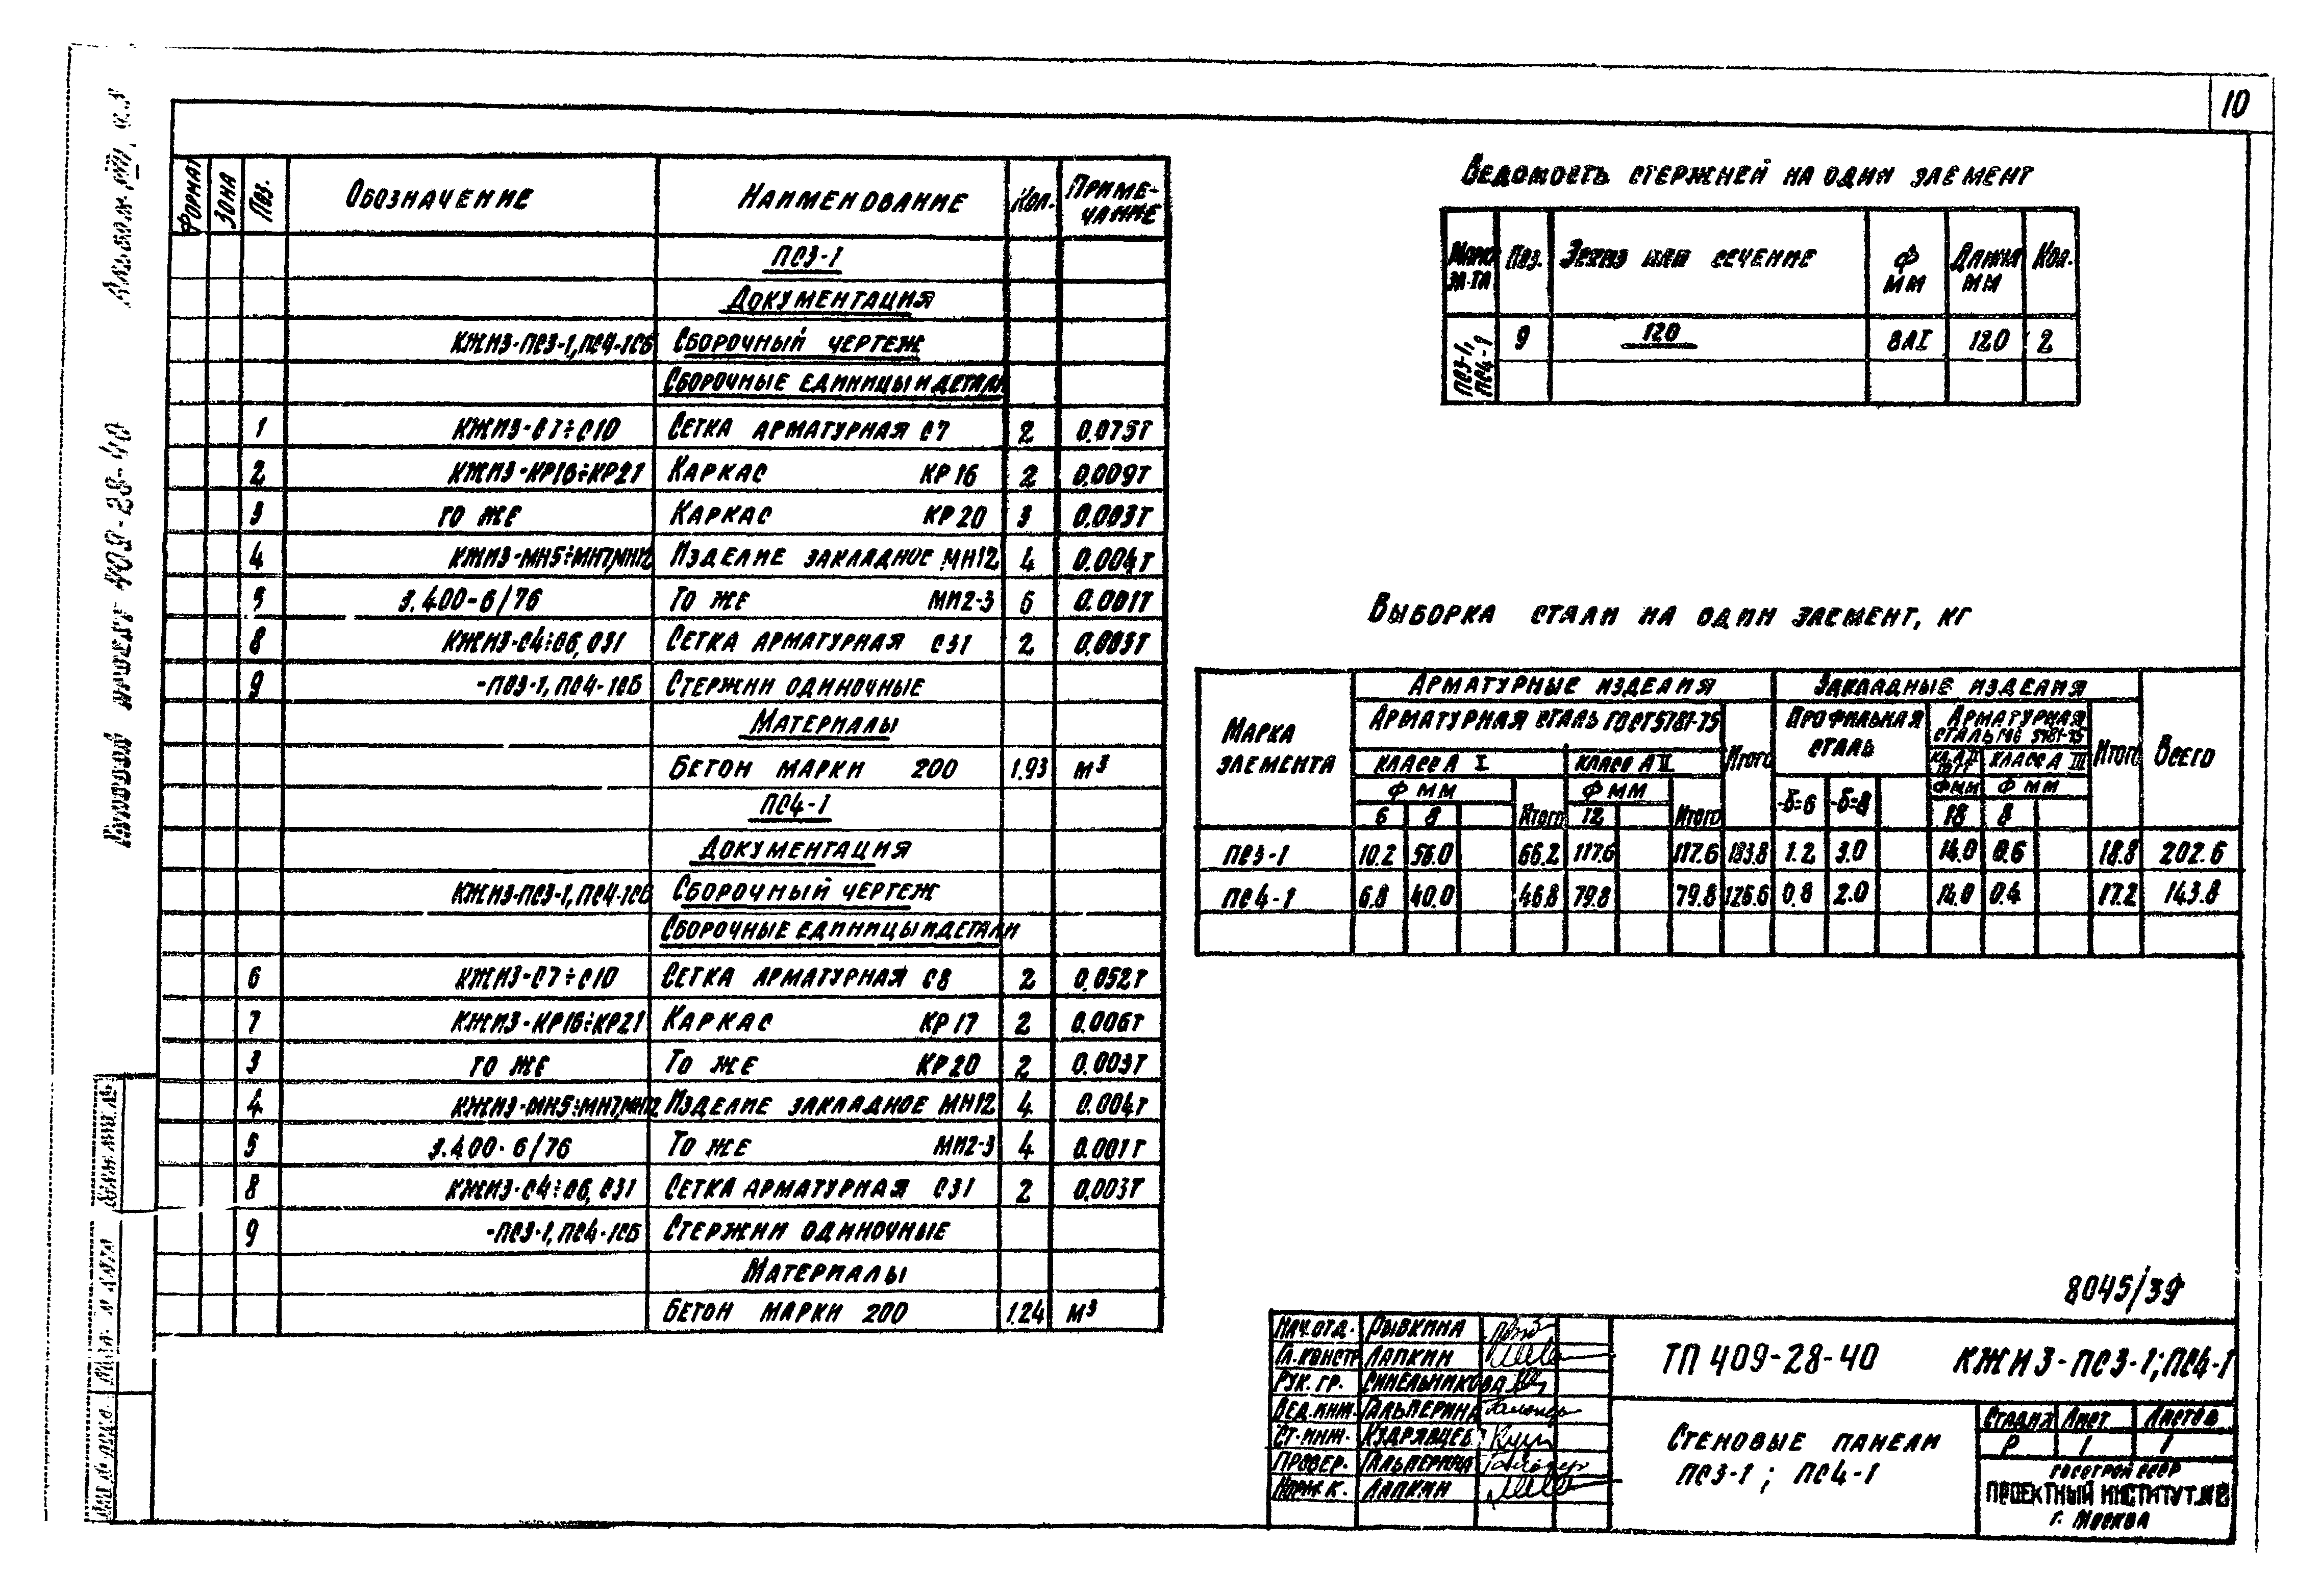 10
Альбом VIII, ч.3
Типовой проект 409-28-40
Формат Зона Поз. Обозначение Наименование Кол. Приме-
чание
ПС3-1
Документация
КЖИЗ-ПС3-1, ПС4-1СБ Сборочный чертеж
Сборочные единицы и детали
1 КЖИЗ-С7÷С10 Сетка арматурная С7 2 0.075т
2 КЖИЗ-КР16÷КР21 Каркас КР16 2 0.009т
3 То же Каркас КР20 3 0.003т
4 КЖИЗ-МН5÷МН7,МН12 Изделие закладное МН12 4 0.004т
5 3.400-6/76 То же МИ2-3 6 0.001т
8 КЖИЗ-С4÷С6, С31 Сетка арматурная С31 2 0.003т
9 -ПС3-1, ПС4-1СБ Стержни одиночные
Материалы
Бетон марки 200 1.93 м³
ПС4-1
Документация
КЖИЗ-ПС3-1, ПС4-1СБ Сборочный чертеж
Сборочные единицы и детали
6 КЖИЗ-С7÷С10 Сетка арматурная С8 2 0.052т
7 КЖИЗ-КР16÷КР21 Каркас КР17 2 0.006т
3 То же То же КР20 2 0.003т
4 КЖИЗ-МН5÷МН7,МН12 Изделие закладное МН12 4 0.004т
5 3.400-6/76 То же МИ2-3 4 0.001т
8 КЖИЗ-С4÷С6, С31 Сетка арматурная С31 2 0.003т
9 -ПС3-1, ПС4-1СБ Стержни одиночные
Материалы
Бетон марки 200 1.24 м³
Ведомость стержней на один элемент
Марка
эл-та Поз. Эскиз или сечение Ф
мм Длина
мм Кол.
ПС3-1,
ПС4-1 9 120 8АI 120 2
Выборка стали на один элемент, кг
Марка
элемента Арматурные изделия Закладные изделия Всего
Арматурная сталь ГОСТ 5781-75 Итого Профильная
сталь Арматурная
сталь 5781-75 Итого
Класс А I Класс А II Класс А III
Ф мм Итого Ф мм Итого -δ=6 -δ=8 Ф мм Ф мм
6 8 12 18 8
ПС3-1 10.2 56.0 66.2 117.6 117.6 183.8 1.2 3.0 14.0 0.6 18.8 202.6
ПС4-1 6.8 40.0 46.8 79.8 79.8 126.6 0.8 2.0 14.0 0.4 17.2 143.8
8045/39
Нач.отд. Рывкина
Гл.констр Лапкин
Рук. гр. Синельникова
Вед.инж. Гальперина
Ст.инж. Кудрявцев
Провер. Гальперина
Норм.к. Лапкин
ТП 409-28-40 КЖИЗ-ПС3-1;ПС4-1
Стеновые панели
ПС3-1; ПС4-1
Стадия Лист Листов
Р 1 1
Госстрой СССР
Проектный институт №2
г. Москва